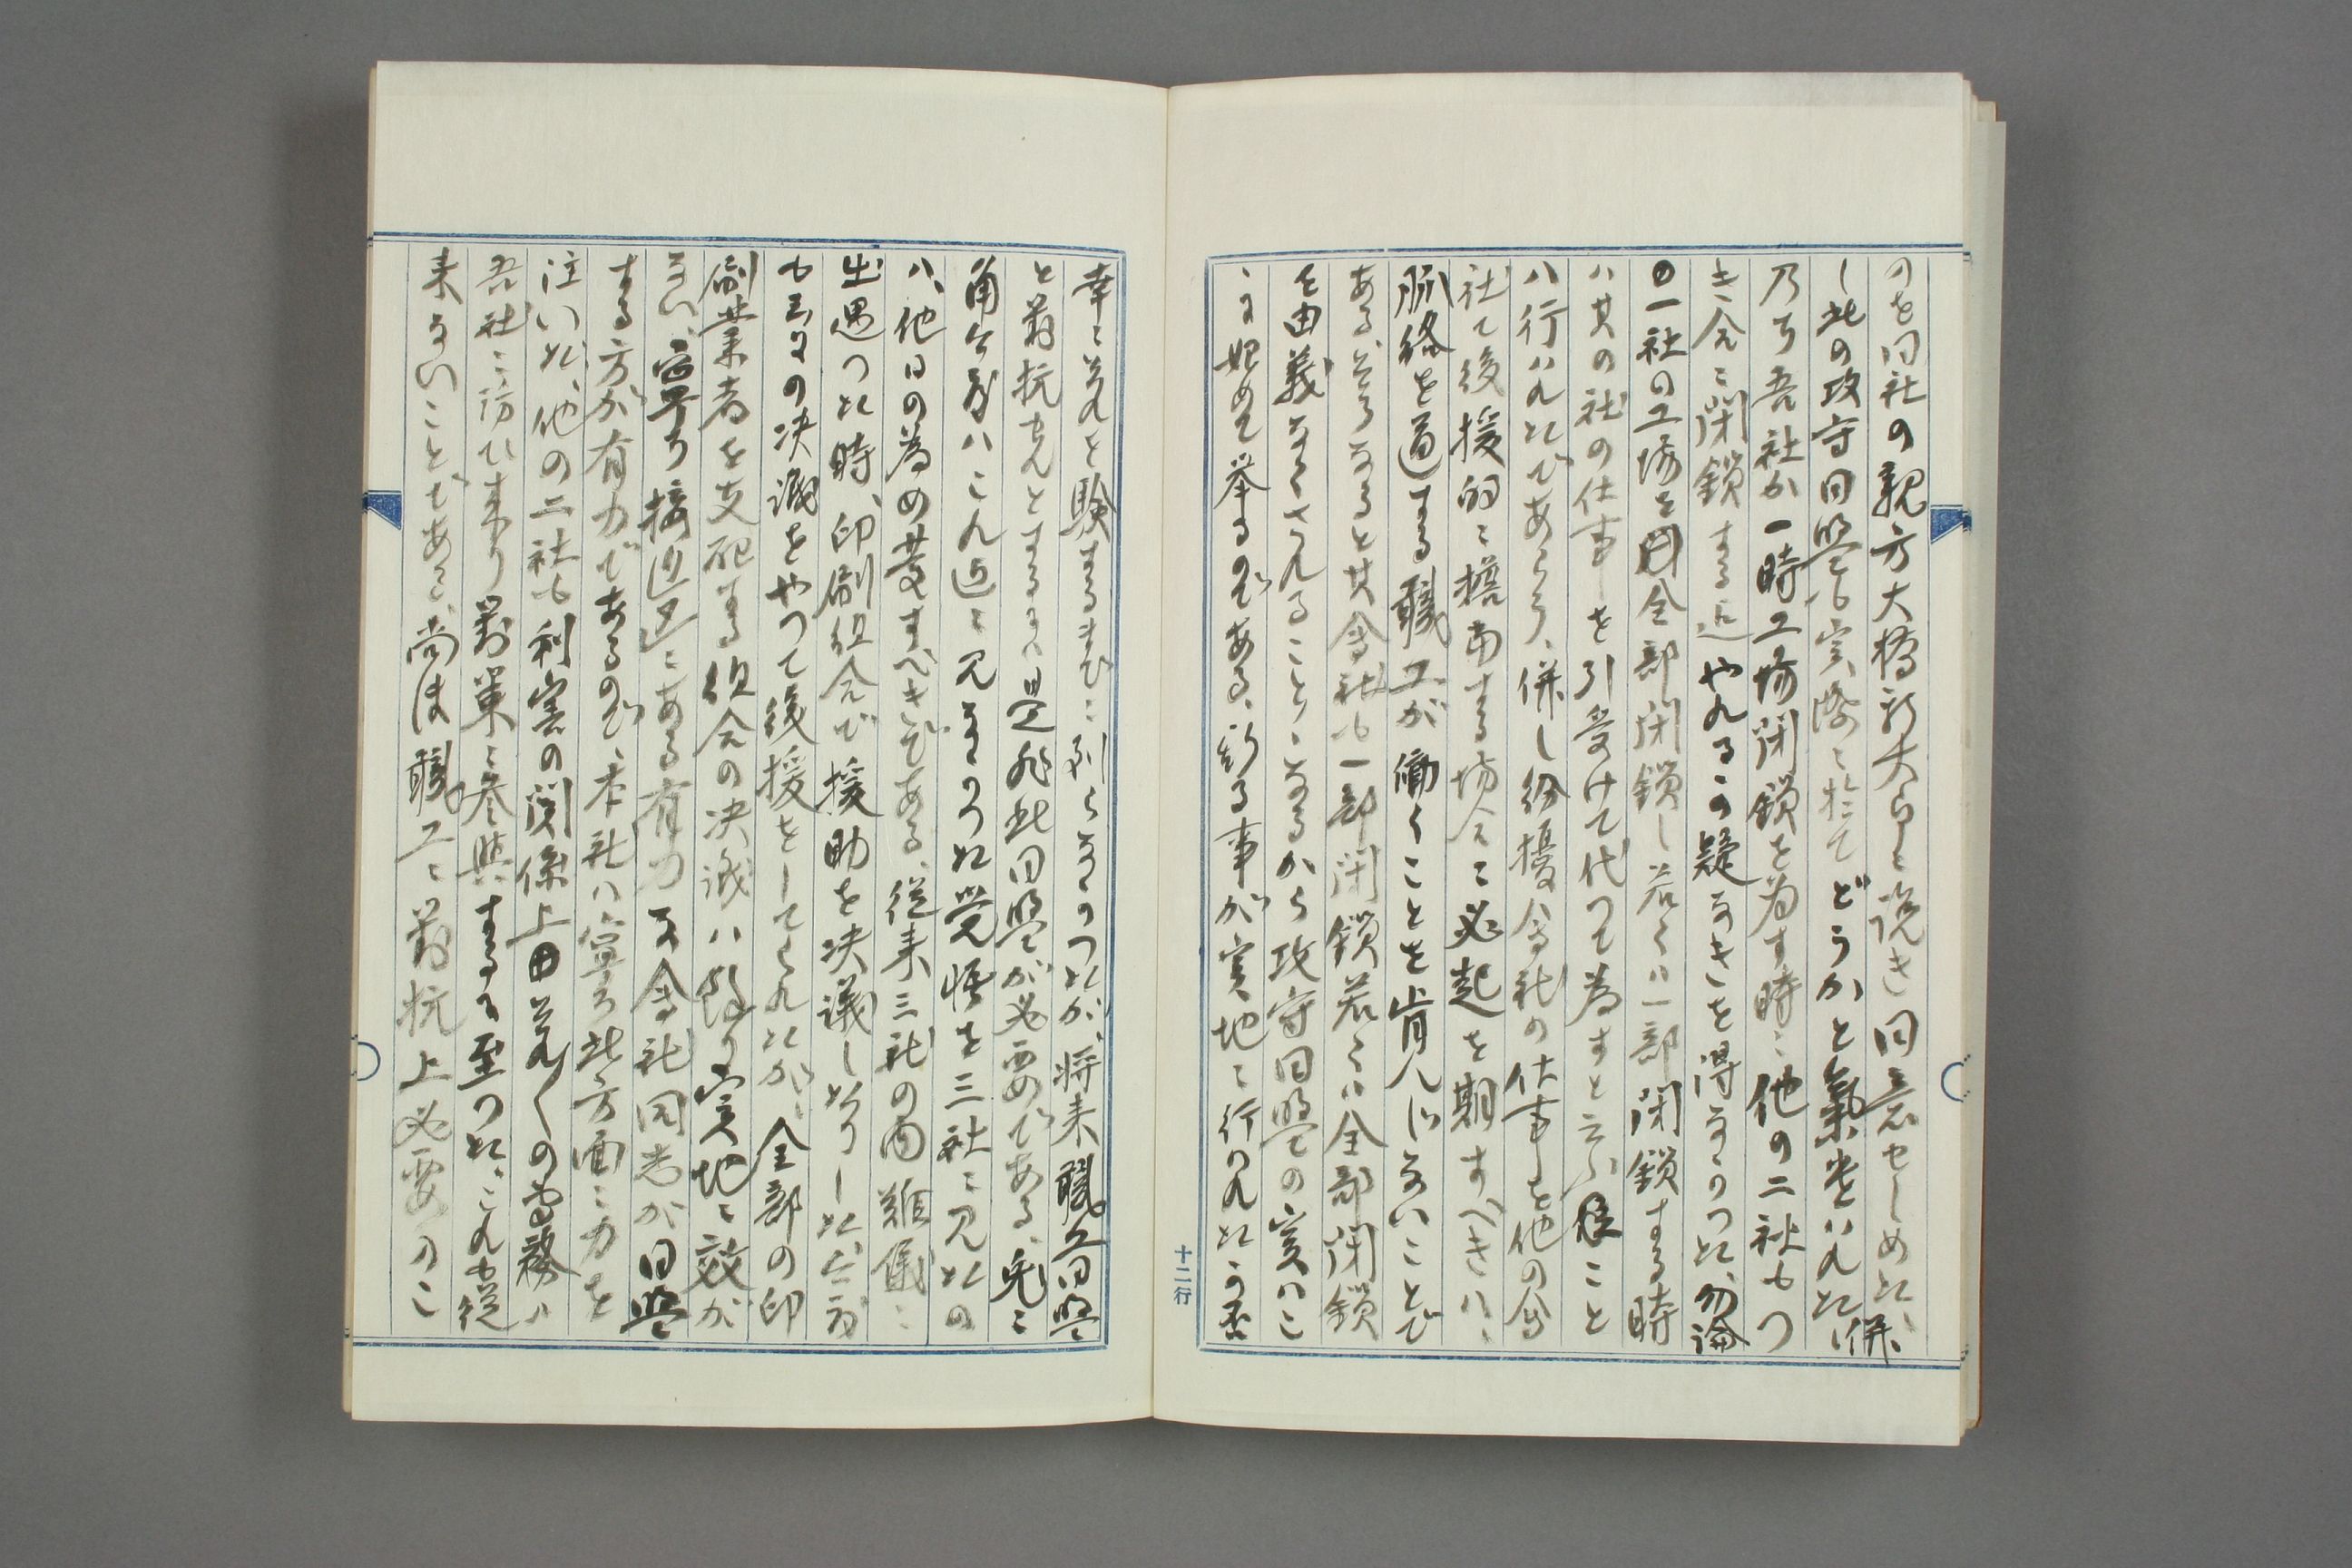 のを同社の親方大橋新太らに説き同意せしめた、併
し此の攻守同盟も実際に於てどうかと気遣はれた、
乃ち吾社が一時工場閉鎖を為す時に他の二社もつ
き合に閉鎖する迄やれるかの疑なきを得なかつた、勿論
の一社の工場を全部閉鎖し若くは一部閉鎖する時
ハ其の社の仕事を引受けて代つて為すと云ふこと
ハ行ハれたであらう、併し紛擾会社の仕事を他の会
社て後援的に擔当する場合に必起を期すべきハ、
脈絡を通する職工が働くことを肯んじないことで
ある、然るなると其会社も一部閉鎖若くハ全部閉鎖
を由義なくさんることになるから攻守同盟の実ハこ
ゝに始めて挙るのである、斯る事が実地に行ハれたか否
十二行
幸に之れを験するまでに到らなかつたが、将来職工同盟
と対抗せんとするには是非此同盟が必要である、兎に
角今度ハこれ迄に見なかつた覚悟を三社に見たの
ハ、他日の為め慶すべきである、従来三社の内難儀に
出遇つた時、印刷組合で援助を決議し来りした、今度
も三日の決議をやつて後援をしてくれたが、全部の印
刷業者を支配する組合の決議ハ餘り実地に效が
ない、寧ろ接近区にある有力な会社同志が同盟
する方が有力であるので、本社ハ寧ろ此方面に力を
注いだ、他の二社も利害の関係上之れ〱の為務ハ
吾社に訪ひ来り対策に参与するに至つた、これも従
来ないことである、尚ほ職工に対抗上必要のこ